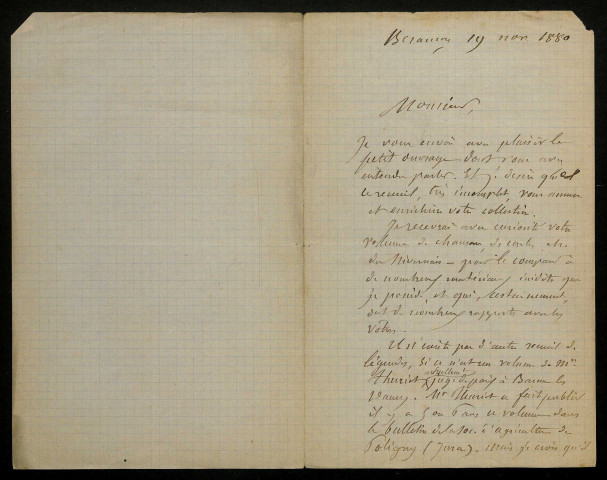 Besançon 19 nov 1880
Monsieur,
Je vous envoie avec plaisir le
petit ouvrage dont vous avez
entendu parler. Et je désire que
ce recueil, très incomplet, vous amuse
et enrichisse votre collection.
Je recevrai avec curiosité votre
volume de chansons, de contes, etc.
du Nivernais – pour le comparer à
de nombreux matériaux inédits que
je possède, et qui, certainement,
ont de nombreux rapports avec les
vôtres.
Il n'existe pas d'autre recueil de
légendes, si ce n'est un volume de Mr
Thuriet actuellement juge de paix à Baume les
Dames. Mr Thuriet a fait publier
il y a 5 ou 6 ans ce volume dans
le bulletin de la Soc. d'agriculture de
Poligny (Jura). Mais je crois qu'il